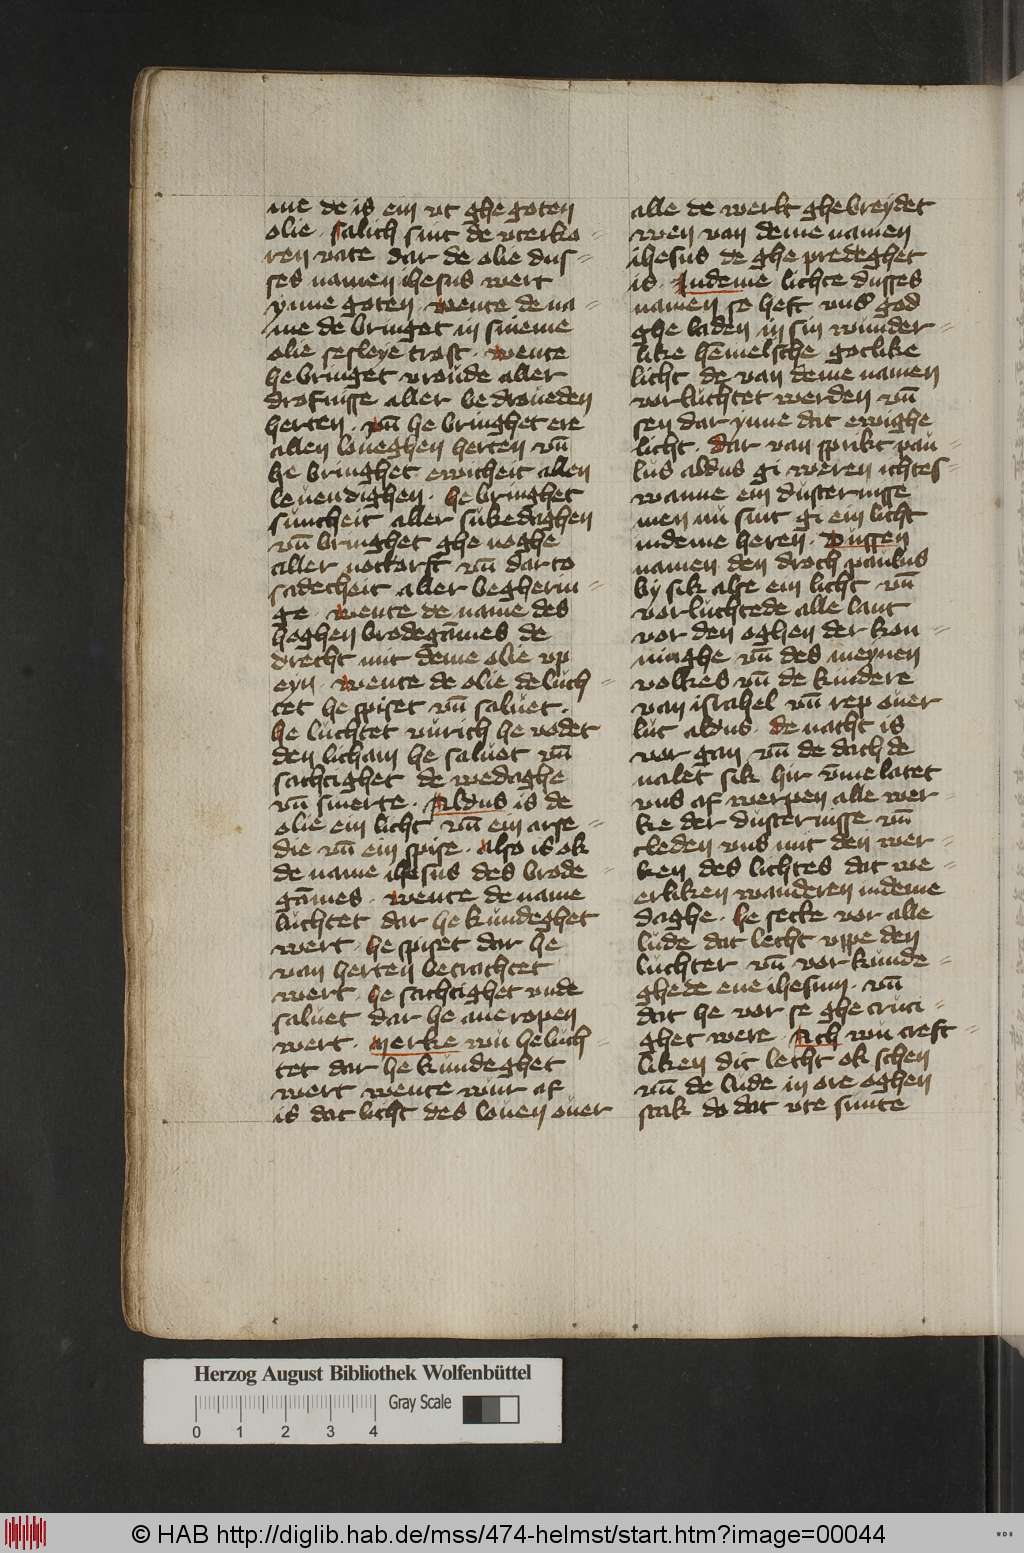 me de is ein vt ghe goten
olie · salich sint de vterko =
ren vate dar de olie dus =
ses namen ihesus wert
ynne goten · wente de na =
me de bringet in sineme
olie sesleye trost · wente
he bringet vroude aller
drofnisse aller bedroueden
herten · vn̄ he bringhet ere
allen loueghen herten vn̄
he bringhet ewicheit allen
leuendighen · he bringhet
suntheit aller sukedaghen
vn̄ bringhet ghe noghe
aller nottorft vn̄ dar to
sadecheit aller begherin =
ge · wente de name des
hoghen brodegāmes de
drecht mit deme olie vp
eyn · wente de olie deluch =
tet he spiset vn̄ saluet ·
he luchtet vurich he vodet
den licham he saluet vn̄
sachtighet de wedaghe
vn̄ smerte · Aldus is de
olie ein licht vn̄ ein arse =
die vn̄ ein spise · also is ok
de name ihesus des brode =
gāmes · wente de name
luchtet dar he kundeghet
wert · he spiset dar he
van herten betrachtet
wert · he sachtighet vnde
saluet dar he ane ropen
wert · Merke wu heluch =
tet dar he kundeghet
wert wente wur af
is dat licht des louen ouer
alle de werlt ghebreydet
wen van deme namen
ihesus de ghe predeghet
is · Indeme lichte dusses
namen so heft vns god
ghe laden in sin wunder =
like hēmelsche gotlike
licht de van deme namen
vorluchtet werden vn̄
sen dar ynne dat ewighe
licht · dar van sprikt pau =
lus aldus gi weren ichtes =
wanne ein dusternisse
men nu sint gi ein licht
indeme heren · Dussen
namen den droch paulus
by sik alse ein licht vn̄
vorluchtede alle lant
vor den oghen der kon =
nighe vn̄ des meynen
volkes vn̄ de kindere
van israhel vn̄ rep ouer
lut aldus · de nacht is
vor gan vn̄ de dach de
nalet sik hir vm̄e latet
vns af werpen alle wer =
ke der dusternisse vn̄
cleden vns mit den wer =
ken des lichtes dat we =
erliken wanderen indeme
daghe · he sette vor alle
lude dat lecht vppe den
luchter vn̄ vor kunde =
ghede ene ihesum · vn̄
dat he vor se ghe cruci =
ghet were · Ach wu creft =
liken dit lecht ok schen
vn̄ de lude in ore oghen
stak do dat vte sunte
Herzog August Bibliothek Wolfenbüttel
Gray Scale
0 1 2 3 4
© HAB http://diglib.hab.de/mss/474-helmst/start.htm?image=00044